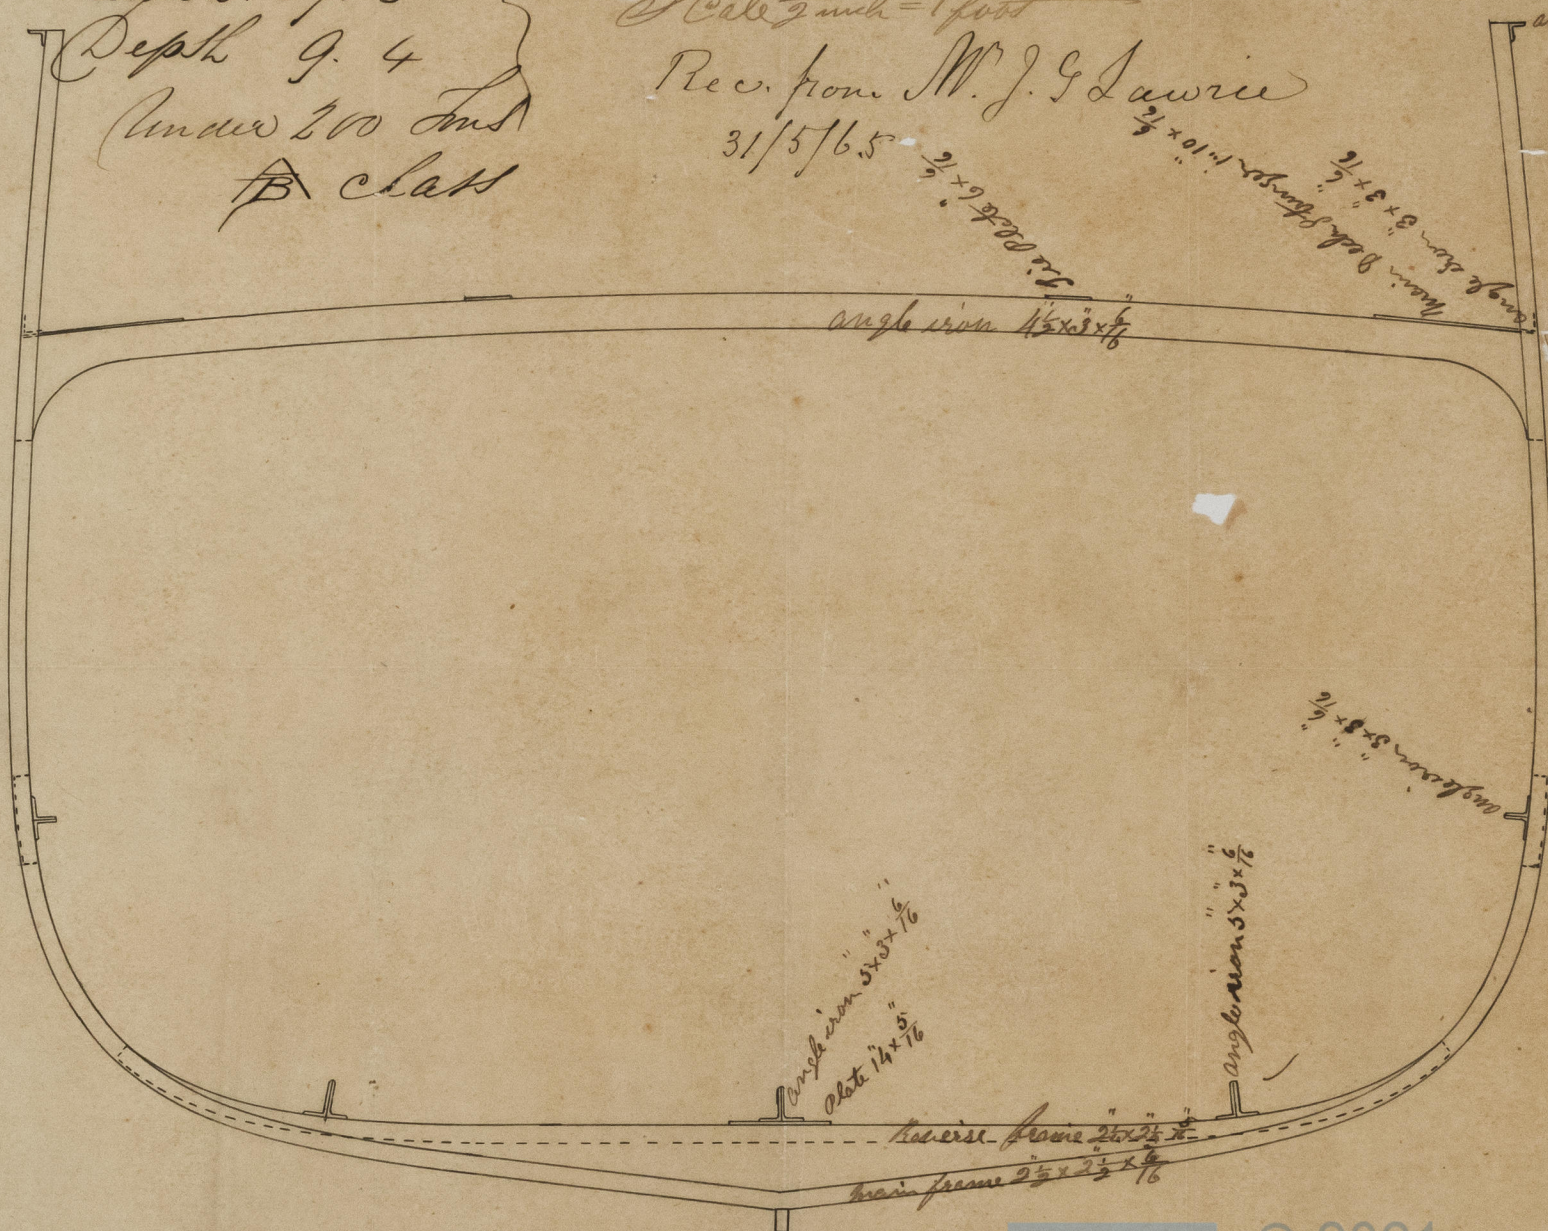 Depth 9. 4
Under 200 Tons
class
Scale ½ inch = 1 foot
Rec. from Mr. J. G Lawrie
31/5/65
Tie Plate 6 × 6/16"
Main Deck Stringer 1"10 × 6/16"
angle iron 3" × 3" × 6/16"
angle iron 4½" × 3" × 6/16"
angle iron 3" × 3" × 6/16"
angle iron 3" × 3" × 6/16"
Plate 14" × 5/16"
angle iron 3" × 3" × 6/16"
Reverse frame
main frame 2½" × 2½" × 6/16